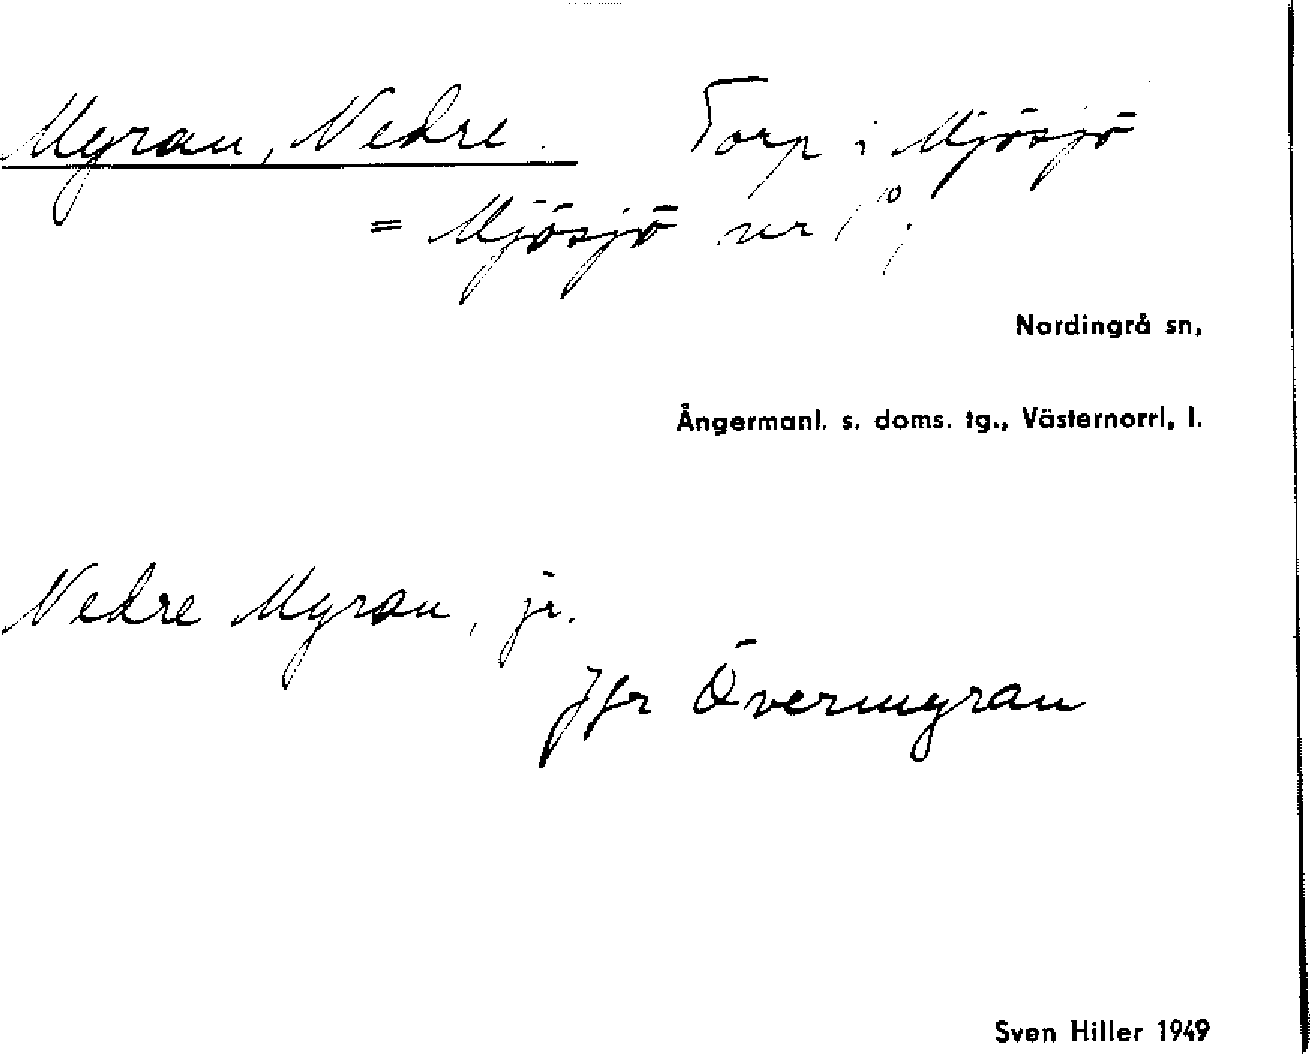 Myran, Nedre. Torp i Mjösjö
= Mjösjö nr 1¹⁰;
Nordingrå sn,
Ångermanl. s. doms. tg., Västernorrl, l.
Nedre Myran, jr.
Jfr Övermyran
Sven Hiller 1949